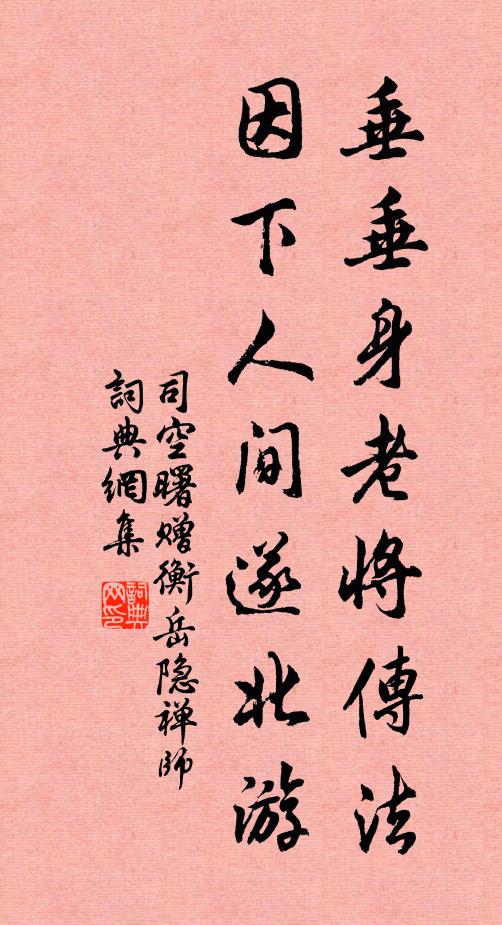 垂垂身老將傳法
因下人间遂北游
司空曙赠衡岳隐禅師
詞典網集
詞典网印